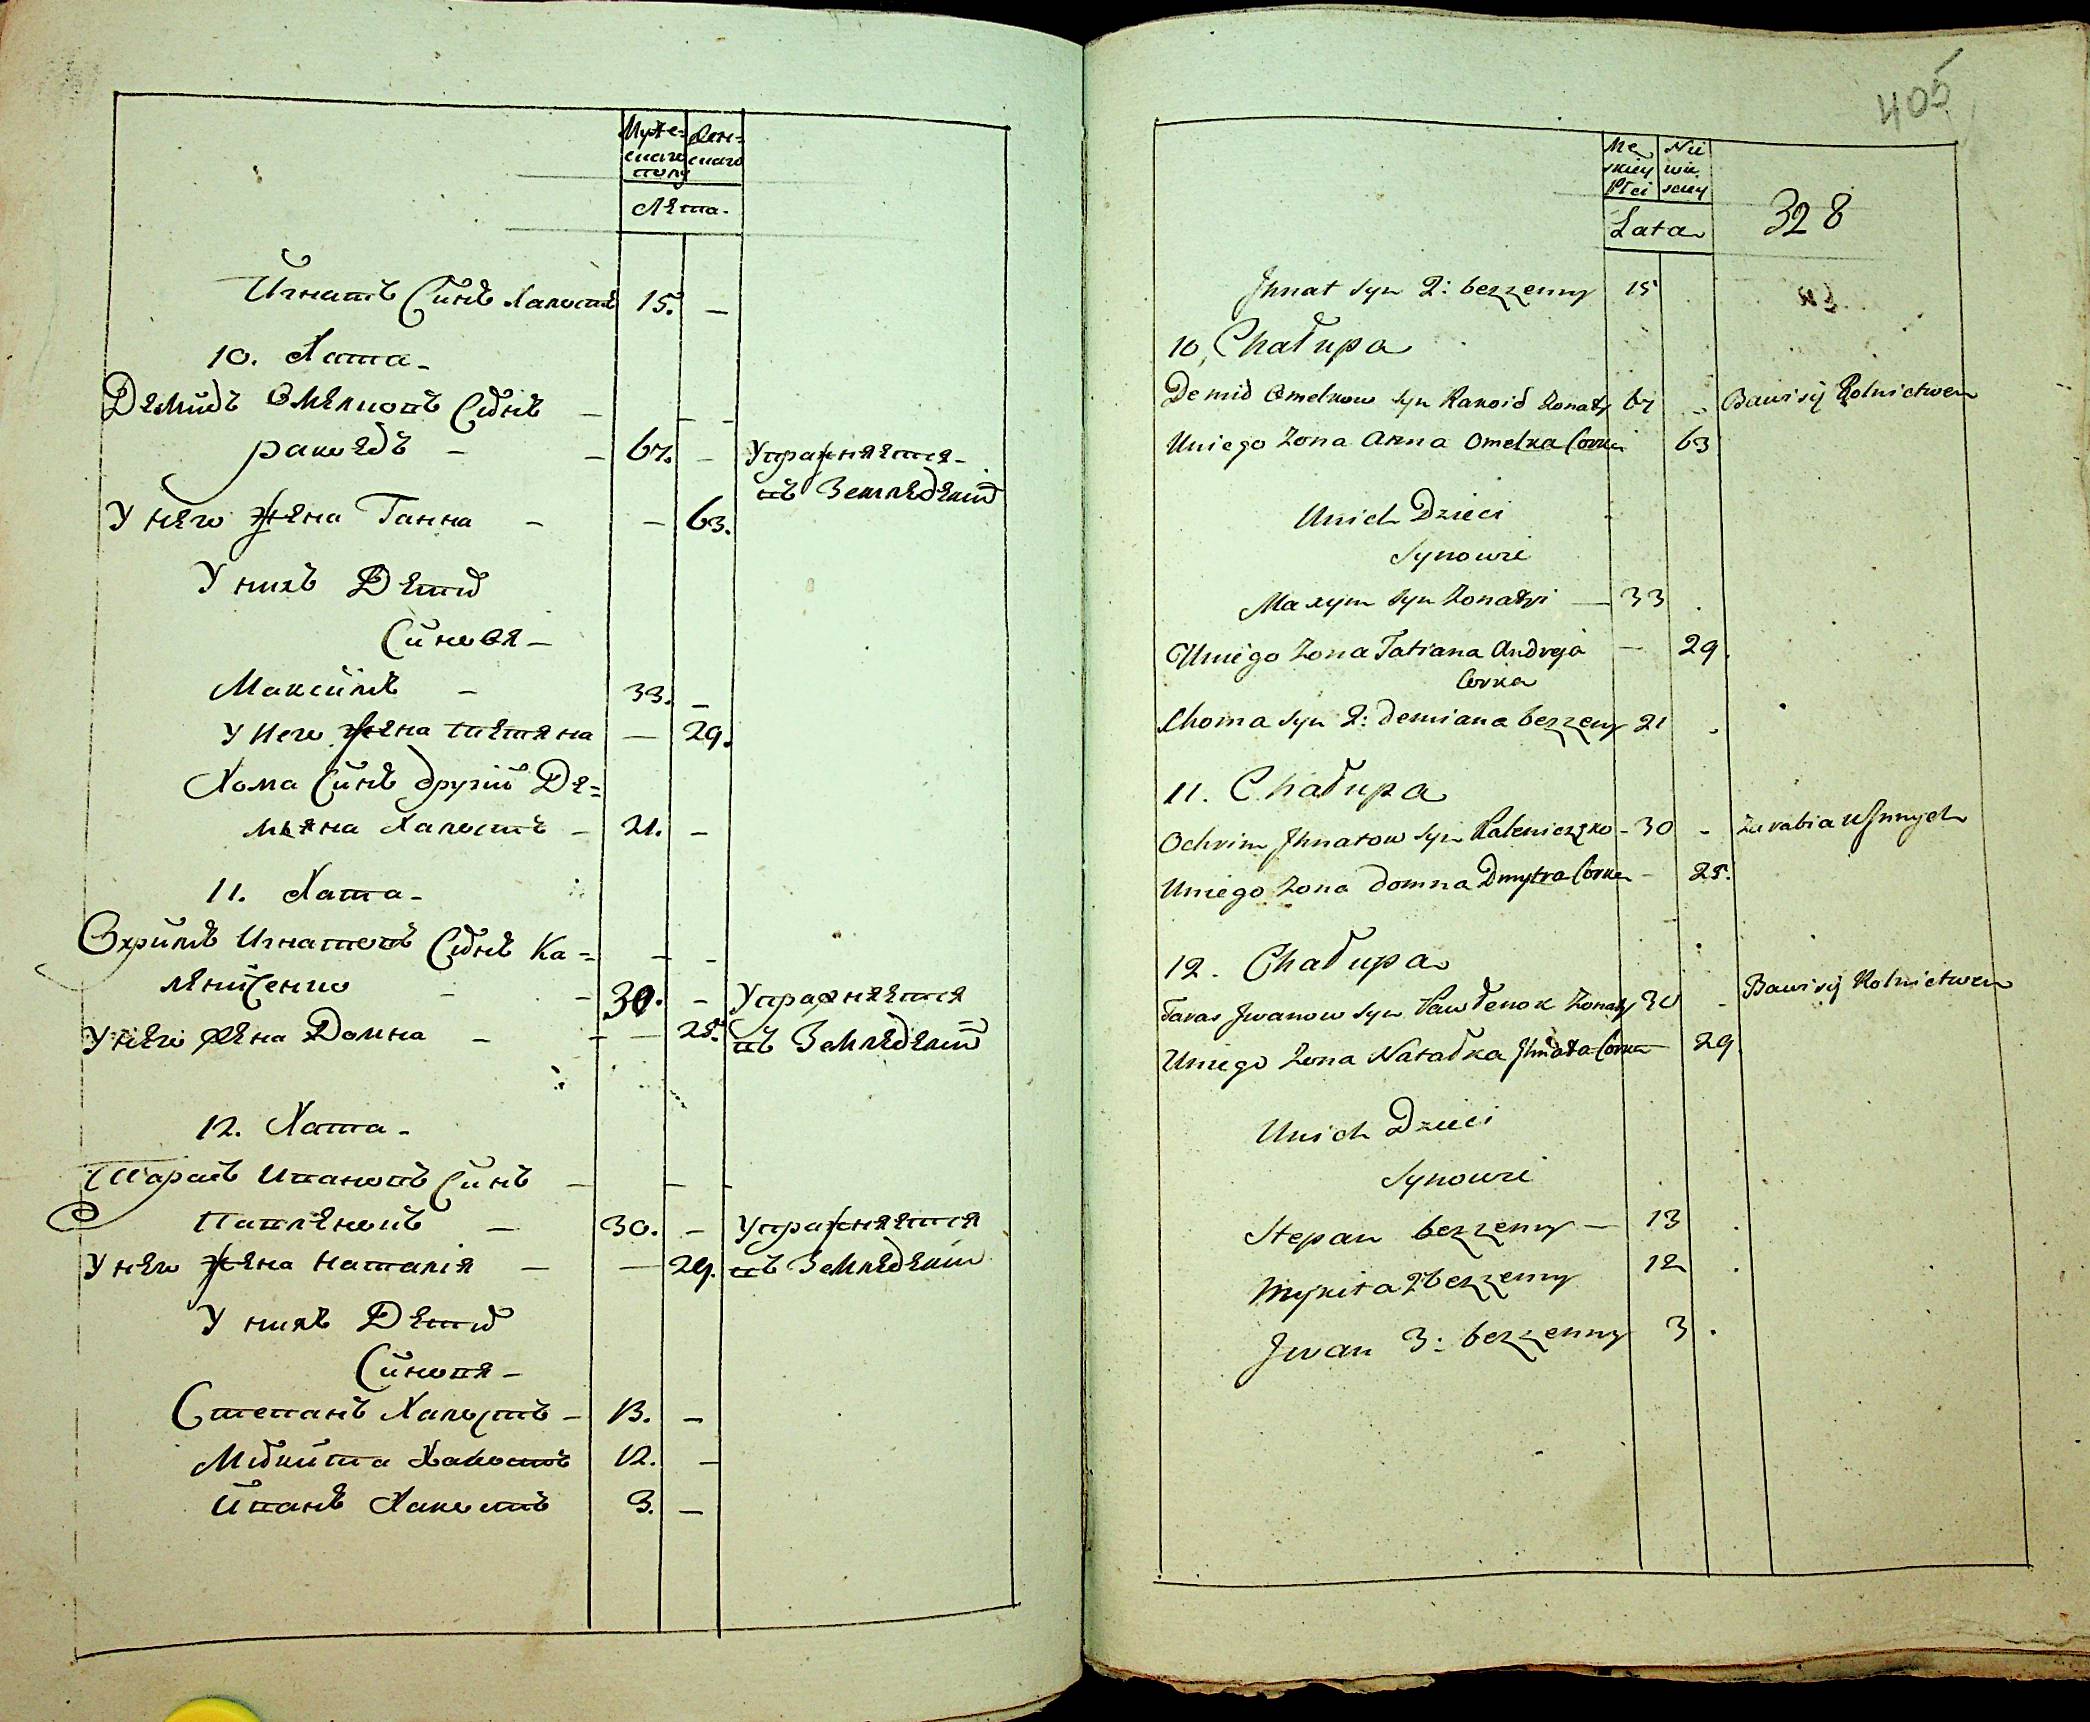 Муже-
скаго
полу
Жен-
скаго
Лѣта.
Игнатъ Синъ Холостъ 15. –
10. Хата –
Демидъ Омелковъ Синъ – – –
ракоедъ – – 67. – Упражняется
въ Земледелій
У него жена Ганна – – 63.
У нихъ Дети
Синовя –
Максимъ – 33. –
У него жена татяна – 29.
Хома Синъ другій Де=
мяна Холостъ – 21. –
11. Хата –
Охримъ Игнатовъ Синъ Ка= – –
лениченко – – 30. – Упражняется
У него жена Домна – – – 25. въ Земледелій
12. Хата –
Тарасъ Ивановъ Синъ – – –
Павленокъ – 30. – Упражняется
У него жена Наталія – – 29. въ Земледелій
У нихъ Дети
Синовя –
Степанъ Холостъ – 13. –
Микита Холостъ 12. –
Иванъ Холостъ 3. –
405
Mę
skiey
Płci
Nie
wie
sciey
Lata
328
Jhnat Syn 2: bezzenny 15
10, Chałupa
Demid Omelkow Syn Rakoid Zonaty 67 – Bawi się Rolnictwem
Uniego Zona Anna Omelka Corka 63
Unich Dzieci
Synowie
Maxym Syn Zonaty – 33
Uniego Zona Tatiana Andreja – 29.
Corka
Choma Syn 2: demiana bezzeny 21
11. Chałupa
Ochrim Jhnatow Syn Kaleniczko – 30 –
Uniego Zona domna Dmytra Corka – 25.
12. Chałupa
Taras Jwanow Syn Pawłenok Zonaty 30 – Bawi się Rolnictwem
Uniego Zona Natałka Jhnata Corka 29
Unich Dzieci
Synowie
Stepan bezzenny – 13
Mykita 2 bezzenny 12
Jwan 3: bezzenny 3